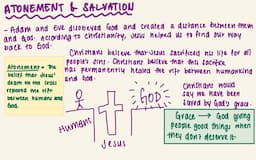 ATONEMENT & SALVATION
- Adam and Eve disobeyed God and created a distance between them
and God. According to Christianity, Jesus helped us to find our way
back to God.
Christians believe that Jesus sacrificed his life for all
people's sins. Christians believe that this sacrifice
has permanently healed the rift between humankind
and God.
Atonement = The
belief that Jesus'
death on the cross
repaired the rift
between humans and
God.
Humans
Jesus
GOD
Christians would
say we have been
saved by God's grace.
Grace → God giving
people good things when
they don't deserve it.